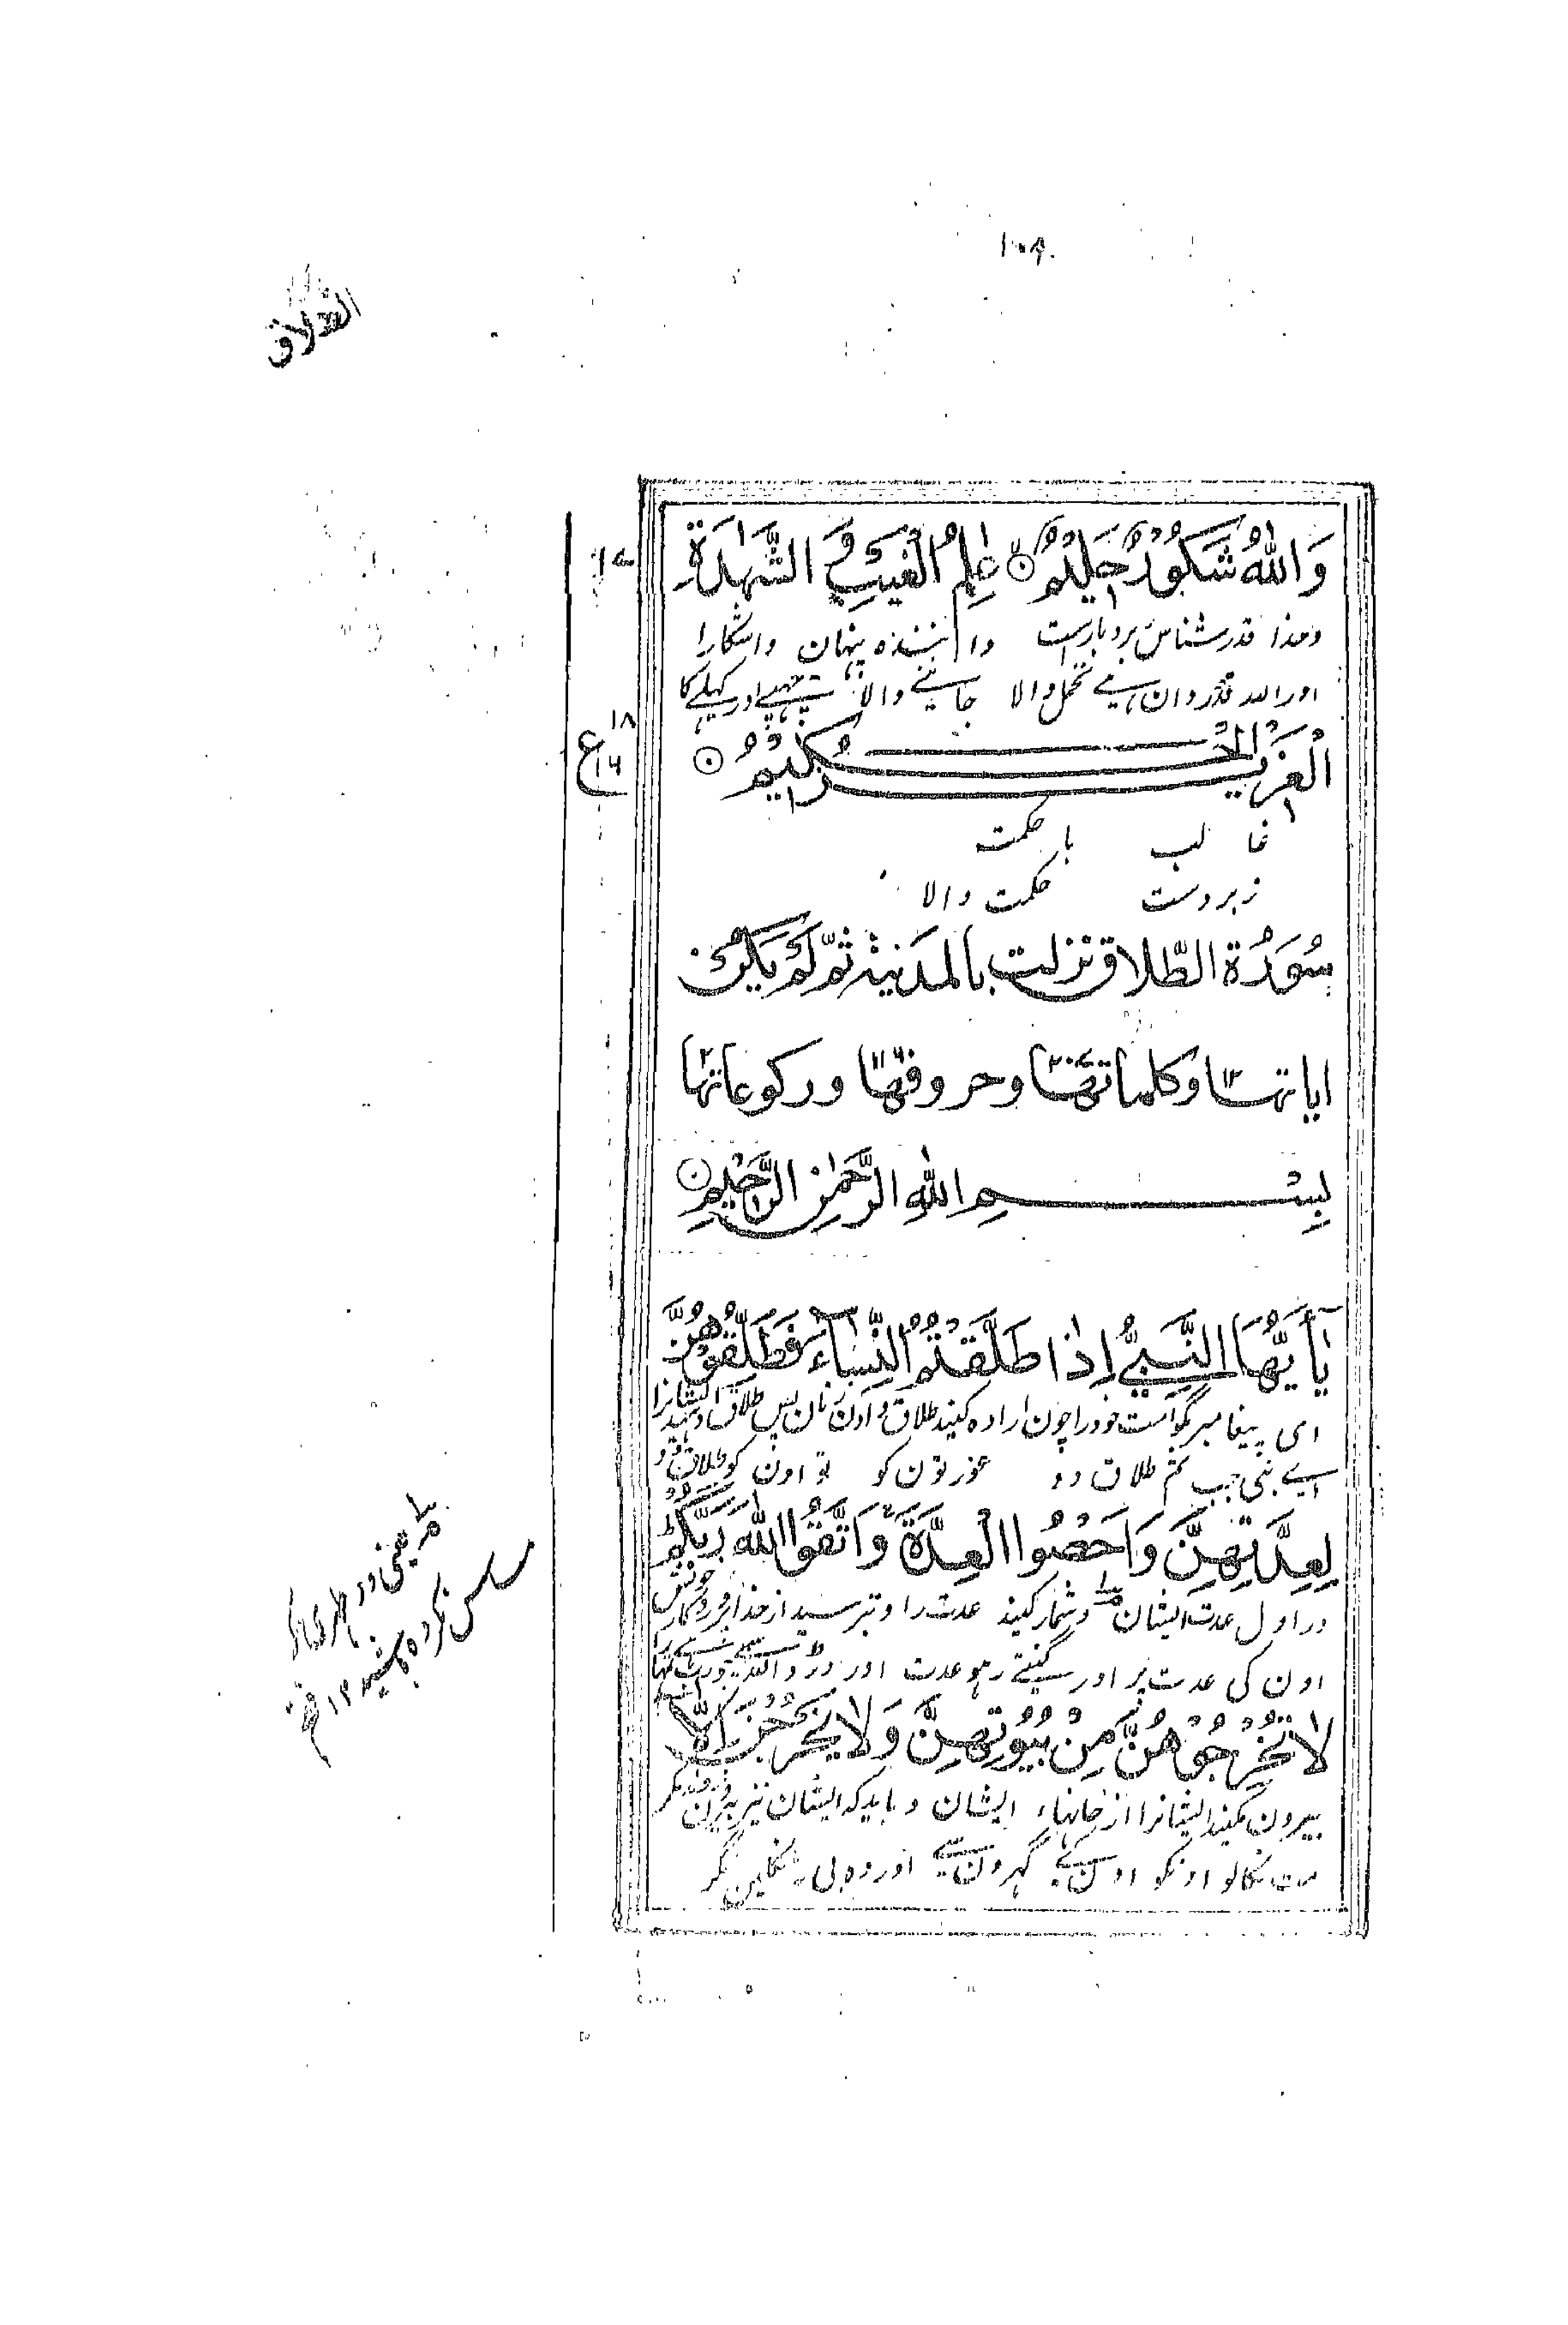 ۱۰۹
الطلاق
وَاللّٰهُ شَكُوْرٌ حَلِيْمٌ ۝ عٰلِمُ الْغَيْبِ وَ الشَّهَادَةِ
وخدا قدر شناس بردبارست دانندہ پنہان واشکارا
اور اللہ قدردان ہے تحمل والا جاننے والا چہپے اور کہلے کا
الْعَزِيْزُ الْحَكِيْمُ ۝
۱۸
ع
۱۶
غالب با حکمت
زبردست حکمت والا
سُوْرَةُ الطّلاق نزلت بالمدينة ثمّ لم يكن
اياتها ۱۲ وكلماتها وحروفها وركوعاتها ۲
بِسْمِ اللّٰهِ الرَّحْمٰنِ الرَّحِيْمِ ۝
يٰأَيُّهَا النَّبِيُّ اِذَا طَلَّقْتُمُ النِّسَآءَ فَطَلِّقُوْهُنَّ
ای پیغامبر بگو امت خود را چون اراده کنید طلاق دادن زنان پس طلاق دهید ایشانرا
ایے نبی جب تم طلاق دو عورتون کو تو اون کو طلاق دو
لِعِدَّتِهِنَّ وَاَحْصُوا الْعِدَّةَ وَاتَّقُوا اللّٰهَ رَبَّكُمْ
در اول عدت ایشان وشمار کنید عدت را وبترسید از خدا پروردگار خویش
اون کی عدت پر اور گنتے رہو عدت اور ڈرو اللہ سے جو رب ہے تمہارا
لَا تُخْرِجُوْهُنَّ مِنْ بُيُوْتِهِنَّ وَلَا يَخْرُجْنَ اِلَّا
بیرون مکنید ایشانرا از خانہاء ایشان و باید کہ ایشان نیز بیرون نروند مگر
مت نکالو اونکو اون کے گہرون سے اور وہ بی نہ نکلین مگر
یعنی در طہری کہ
مس نکرده باشید ۱۲ فتح